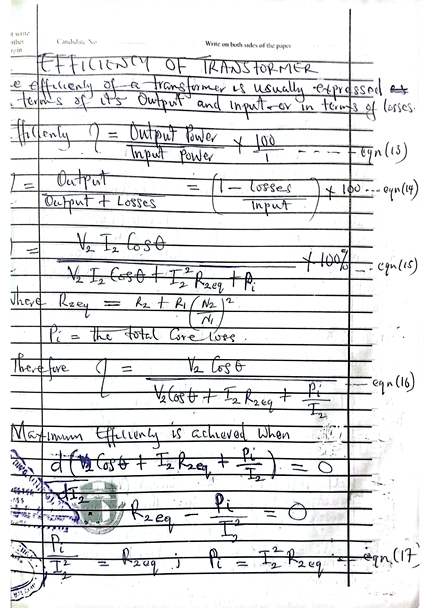 Candidate No
Write on both sides of the paper
EFFICIENCY OF TRANSFORMER
e efficienly of a transformer is usually expressed
terms of its Output and input or in terms of losses.
fficienly η = Output Power / Input Power × 100 / 1 ---- eqn (13)
= Output / Output + Losses = (1 - losses / Input) × 100 --- eqn (14)
= V₂ I₂ Cosθ / V₂ I₂ Cosθ + I₂² R₂eq + Pi × 100% -- eqn (15)
where R₂eq = R₂ + R₁ (N₂ / N₁)²
Pi = the total Core loss.
Therefore η = V₂ Cosθ / V₂ Cosθ + I₂ R₂eq + Pi / I₂ -- eqn (16)
Maximum Efficiency is achieved when
d (V₂ Cosθ + I₂ R₂eq + Pi / I₂) = 0
dI₂
R₂eq - Pi / I₂² = 0
Pi / I₂² = R₂eq ; Pi = I₂² R₂eq --- eqn (17)